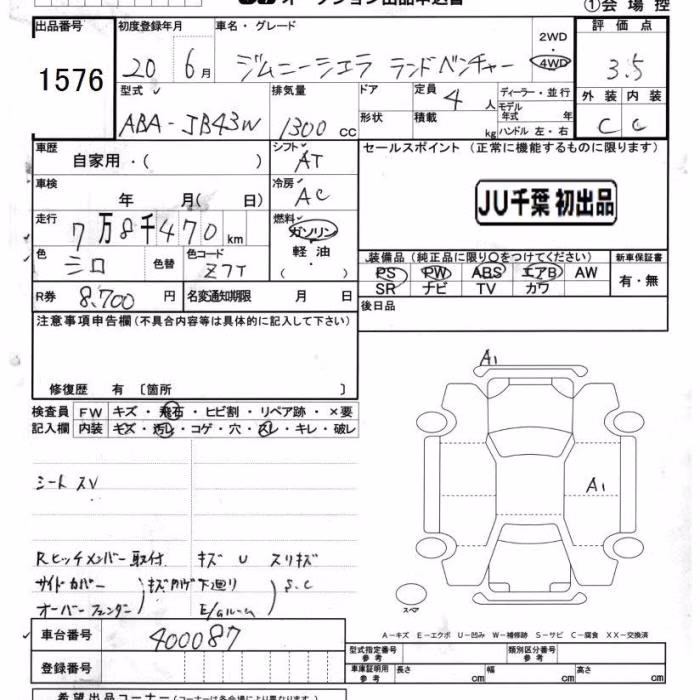 オークション出品申込書
①会場控
出品番号
1576
初度登録年月
20 6月
車名・グレード
ジムニーシエラ ランドベンチャー
2WD
・
4WD
評価点
3.5
型式
ABA-JB43W
排気量
1300 cc
ドア
形状
定員
4 人
積載
kg
ディーラー・並行
モデル
年式 年
ハンドル 左・右
外装 内装
C C
車歴
自家用・( )
シフト
AT
セールスポイント (正常に機能するものに限ります)
車検
年 月( 日)
冷房
AC
JU千葉 初出品
走行
7万8千470km
燃料
ガソリン
軽油
・
色
シロ
色替
色コード
Z7T
装備品 (純正品に限り○をつけてください)
PS PW ABS エアB AW
SR ナビ TV カワ
新車保証書
有・無
R券
8,700 円
名変通知期限 月 日
後日品
注意事項申告欄 (不具合内容等は具体的に記入して下さい)
修復歴 有 〔箇所 〕
検査員
記入欄
FW キズ・飛石・ヒビ割・リペア跡・×要
内装 キズ・汚レ・コゲ・穴・スレ・キレ・破レ
シート スレ
Rヒッチメンバー取付 キズ U スリキズ
サイドカバー
オーバーフェンダー
キズ 下廻り
E/gルーム
S.C
A1
A1
スペア
A−キズ E−エクボ U−凹み W−補修跡 S−サビ C−腐食 XX−交換済
車台番号
400087
登録番号
型式指定番号
参考
類別区分番号
参考
車庫証明用
参考
長さ cm
幅 cm
高さ cm
希望出品コーナー (コーナーは各会場により異なります)